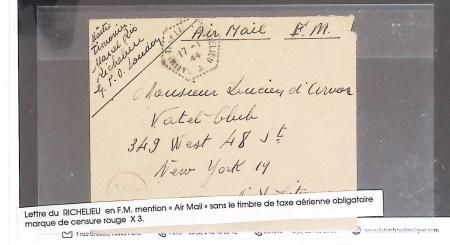 Air Mail F.M.
Richelieu
G. P. O. London
RICHELIEU
17-1
44
Monsieur Lucien d'Arvor
Vatel-Club
349 West 48 St
New York 19
Lettre du RICHELIEU en F.M. mention « Air Mail » sans le timbre de taxe aérienne obligatoire
marque de censure rouge X 3.